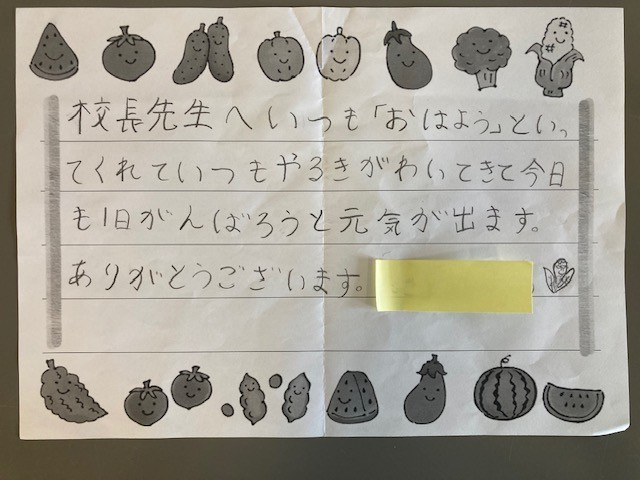 校長先生へいつも「おはよう」といっ
てくれていつもやるきがわいてきて今日
も1日がんばろうと元気が出ます。
ありがとうございます。